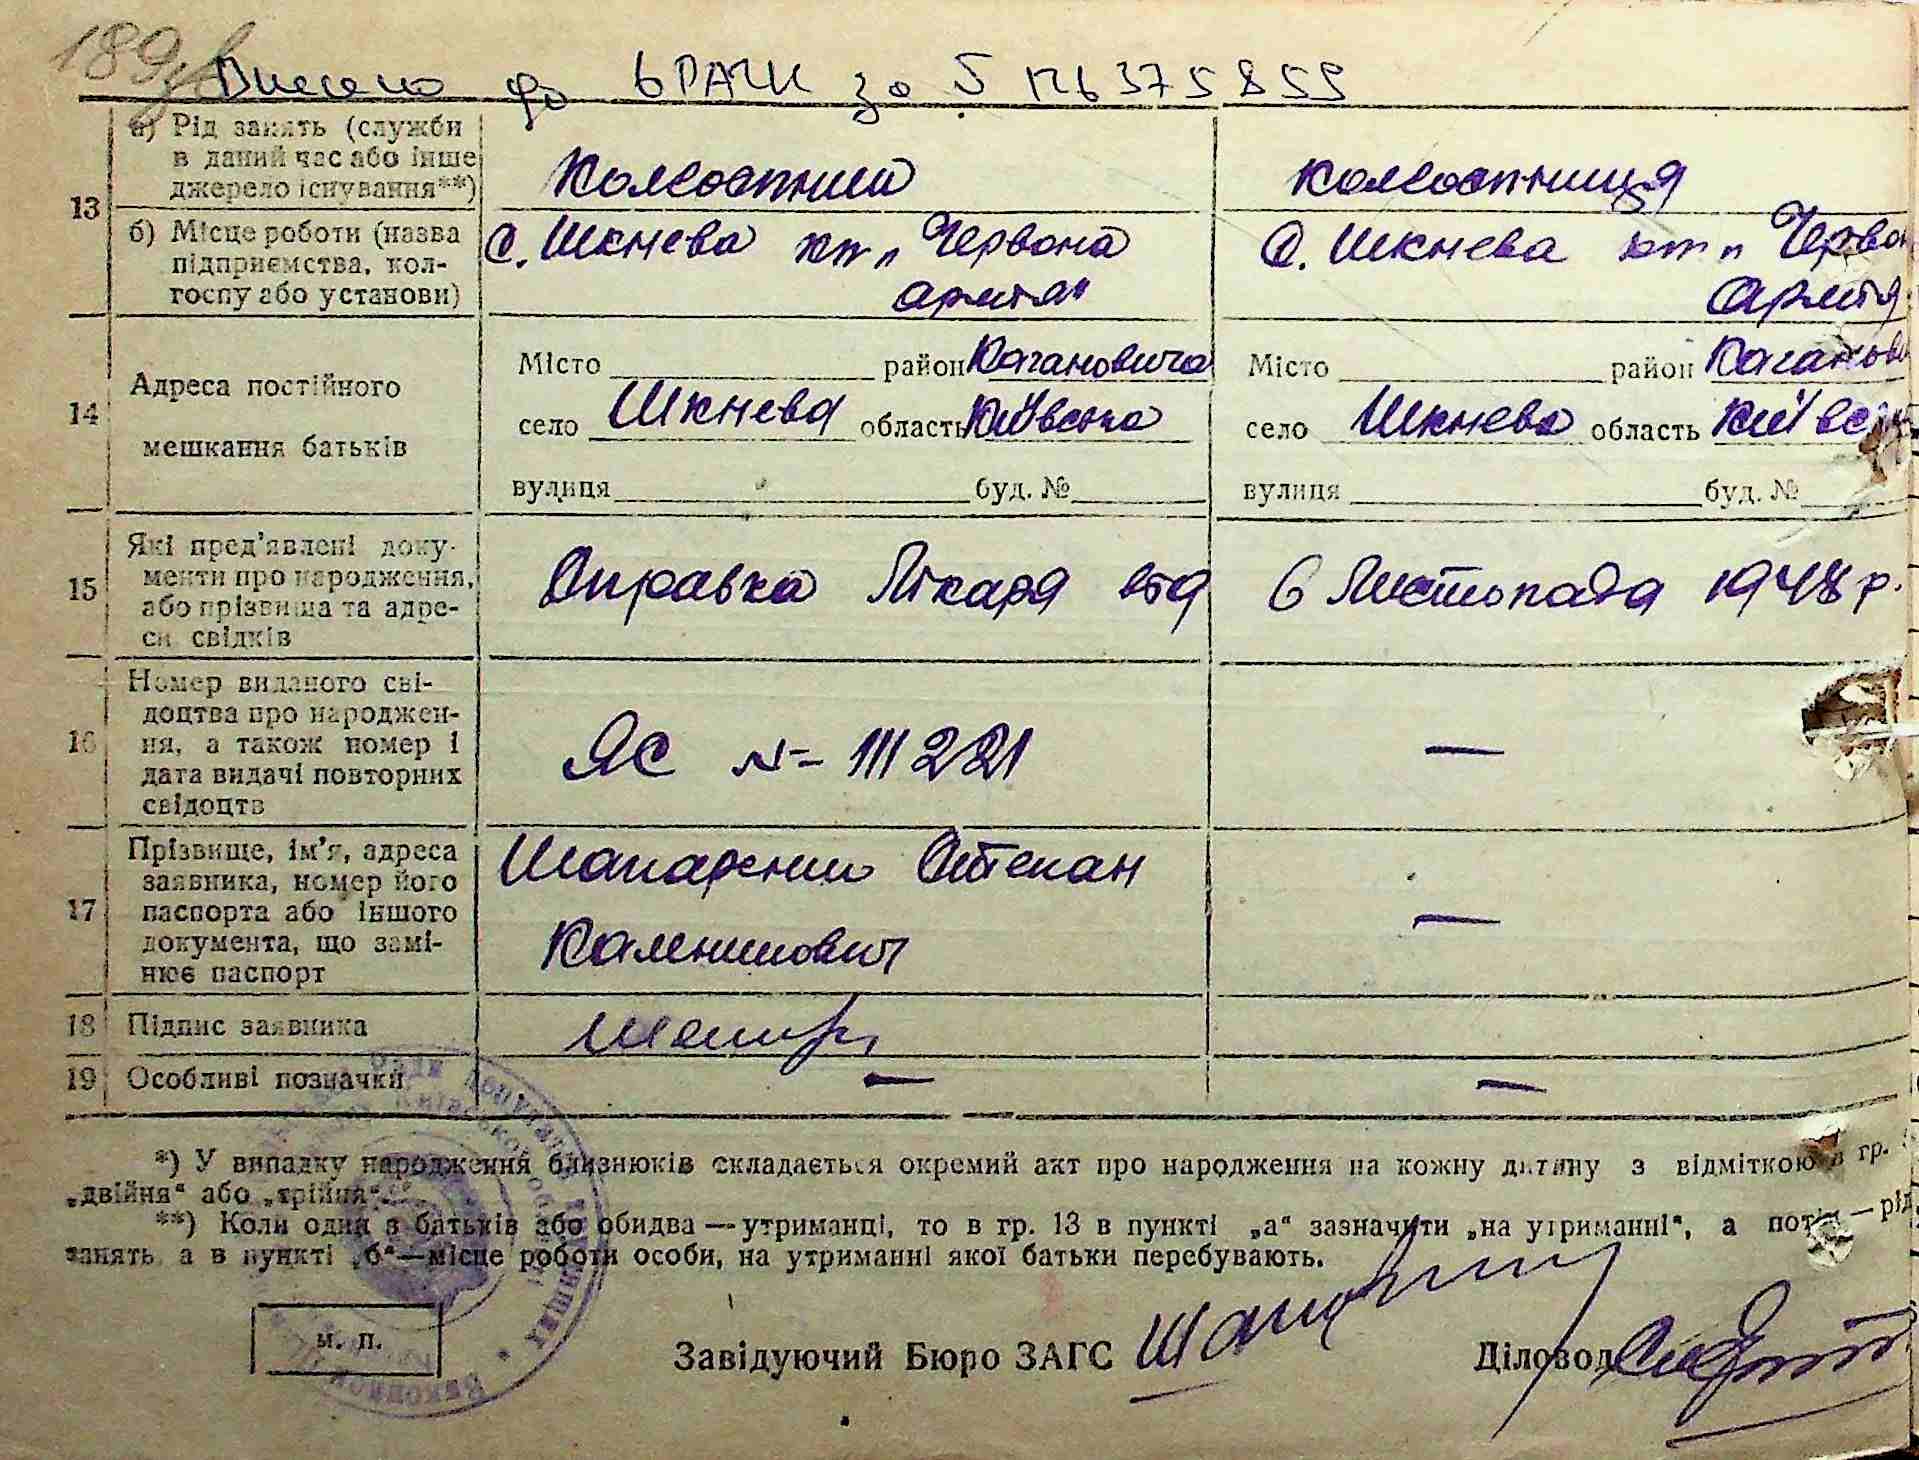 189зв
Внесено до ДРАЦС за №
13
а) Рід занять (служби
в даний час або інше
джерело існування**)
Колгоспник
колгоспниця
б) Місце роботи (назва
підприємства, кол-
госпу або установи)
с. Шкнева к-п „Червона
армія"
с. Шкнева к-п „Черво
Армія
14
Адреса постійного
мешкання батьків
Місто район Кагановича
село Шкнева область Київська
вулиця буд. №
Місто район Каганови
село Шкнева область Київс
вулиця буд. №
15
Які пред'явлені доку-
менти про народження,
або прізвища та адре-
си свідків
Справка Лікаря від 6 Листопада 1948 р.
16
Номер виданого сві-
доцтва про народжен-
ня, а також номер і
дата видачі повторних
свідоцтв
ЯС № 111221
—
17
Прізвище, ім'я, адреса
заявника, номер його
паспорта або іншого
документа, що замі-
нює паспорт
Степан
—
18 Підпис заявника
19 Особливі позначки — —
*) У випадку народження близнюків складається окремий акт про народження на кожну дитину з відміткою в гр.
„двійня" або „трійня".
**) Коли один з батьків або обидва — утриманці, то в гр. 13 в пункті „а" зазначити „на утриманні", а потім — рід
занять, а в пункті „б" — місце роботи особи, на утриманні якої батьки перебувають.
м. п.
Завідуючий Бюро ЗАГС
Діловод